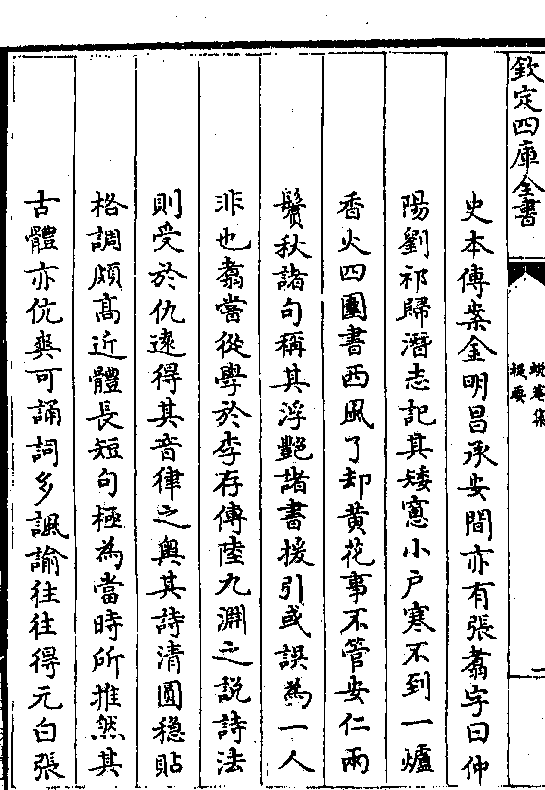 欽定四庫全書
蛻菴集
提要
二
史本傳案金明昌承安間亦有張翥字曰仲
陽劉祁歸潛志記其矮窻小戶寒不到一爐
香火四圍書西風了却黃花事不管安仁兩
鬢秋諸句稱其浮艶諸書援引或誤為一人
非也翥當從學於李存傳陸九淵之説詩法
則受於仇逺得其音律之奥其詩清圓穏貼
格調頗髙近體長短句極為當時所推然其
古體亦伉爽可誦詞多諷諭往往得元白張